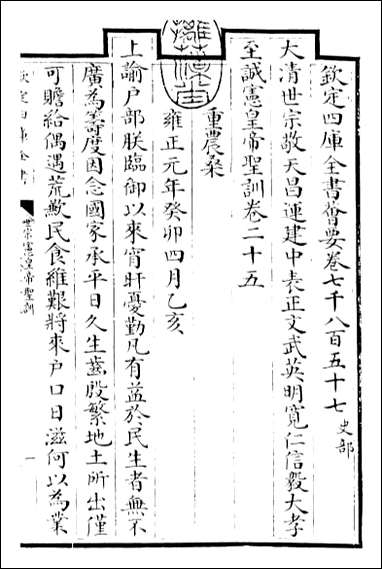 欽定四庫全書薈要卷七千八百五十七 史部
大清世宗敬天昌運建中表正文武英明寬仁信毅大孝
至誠憲皇帝聖訓卷二十五
重農桑
雍正元年癸卯四月乙亥
上諭户部朕臨御以來宵旰憂勤凡有益於民生者無不
廣為籌度因念國家承平日久生齒殷繁地土所出僅
可贍給偶遇荒歉民食維艱將來户口日滋何以為業
欽定四庫全書
世宗憲皇帝聖訓
一